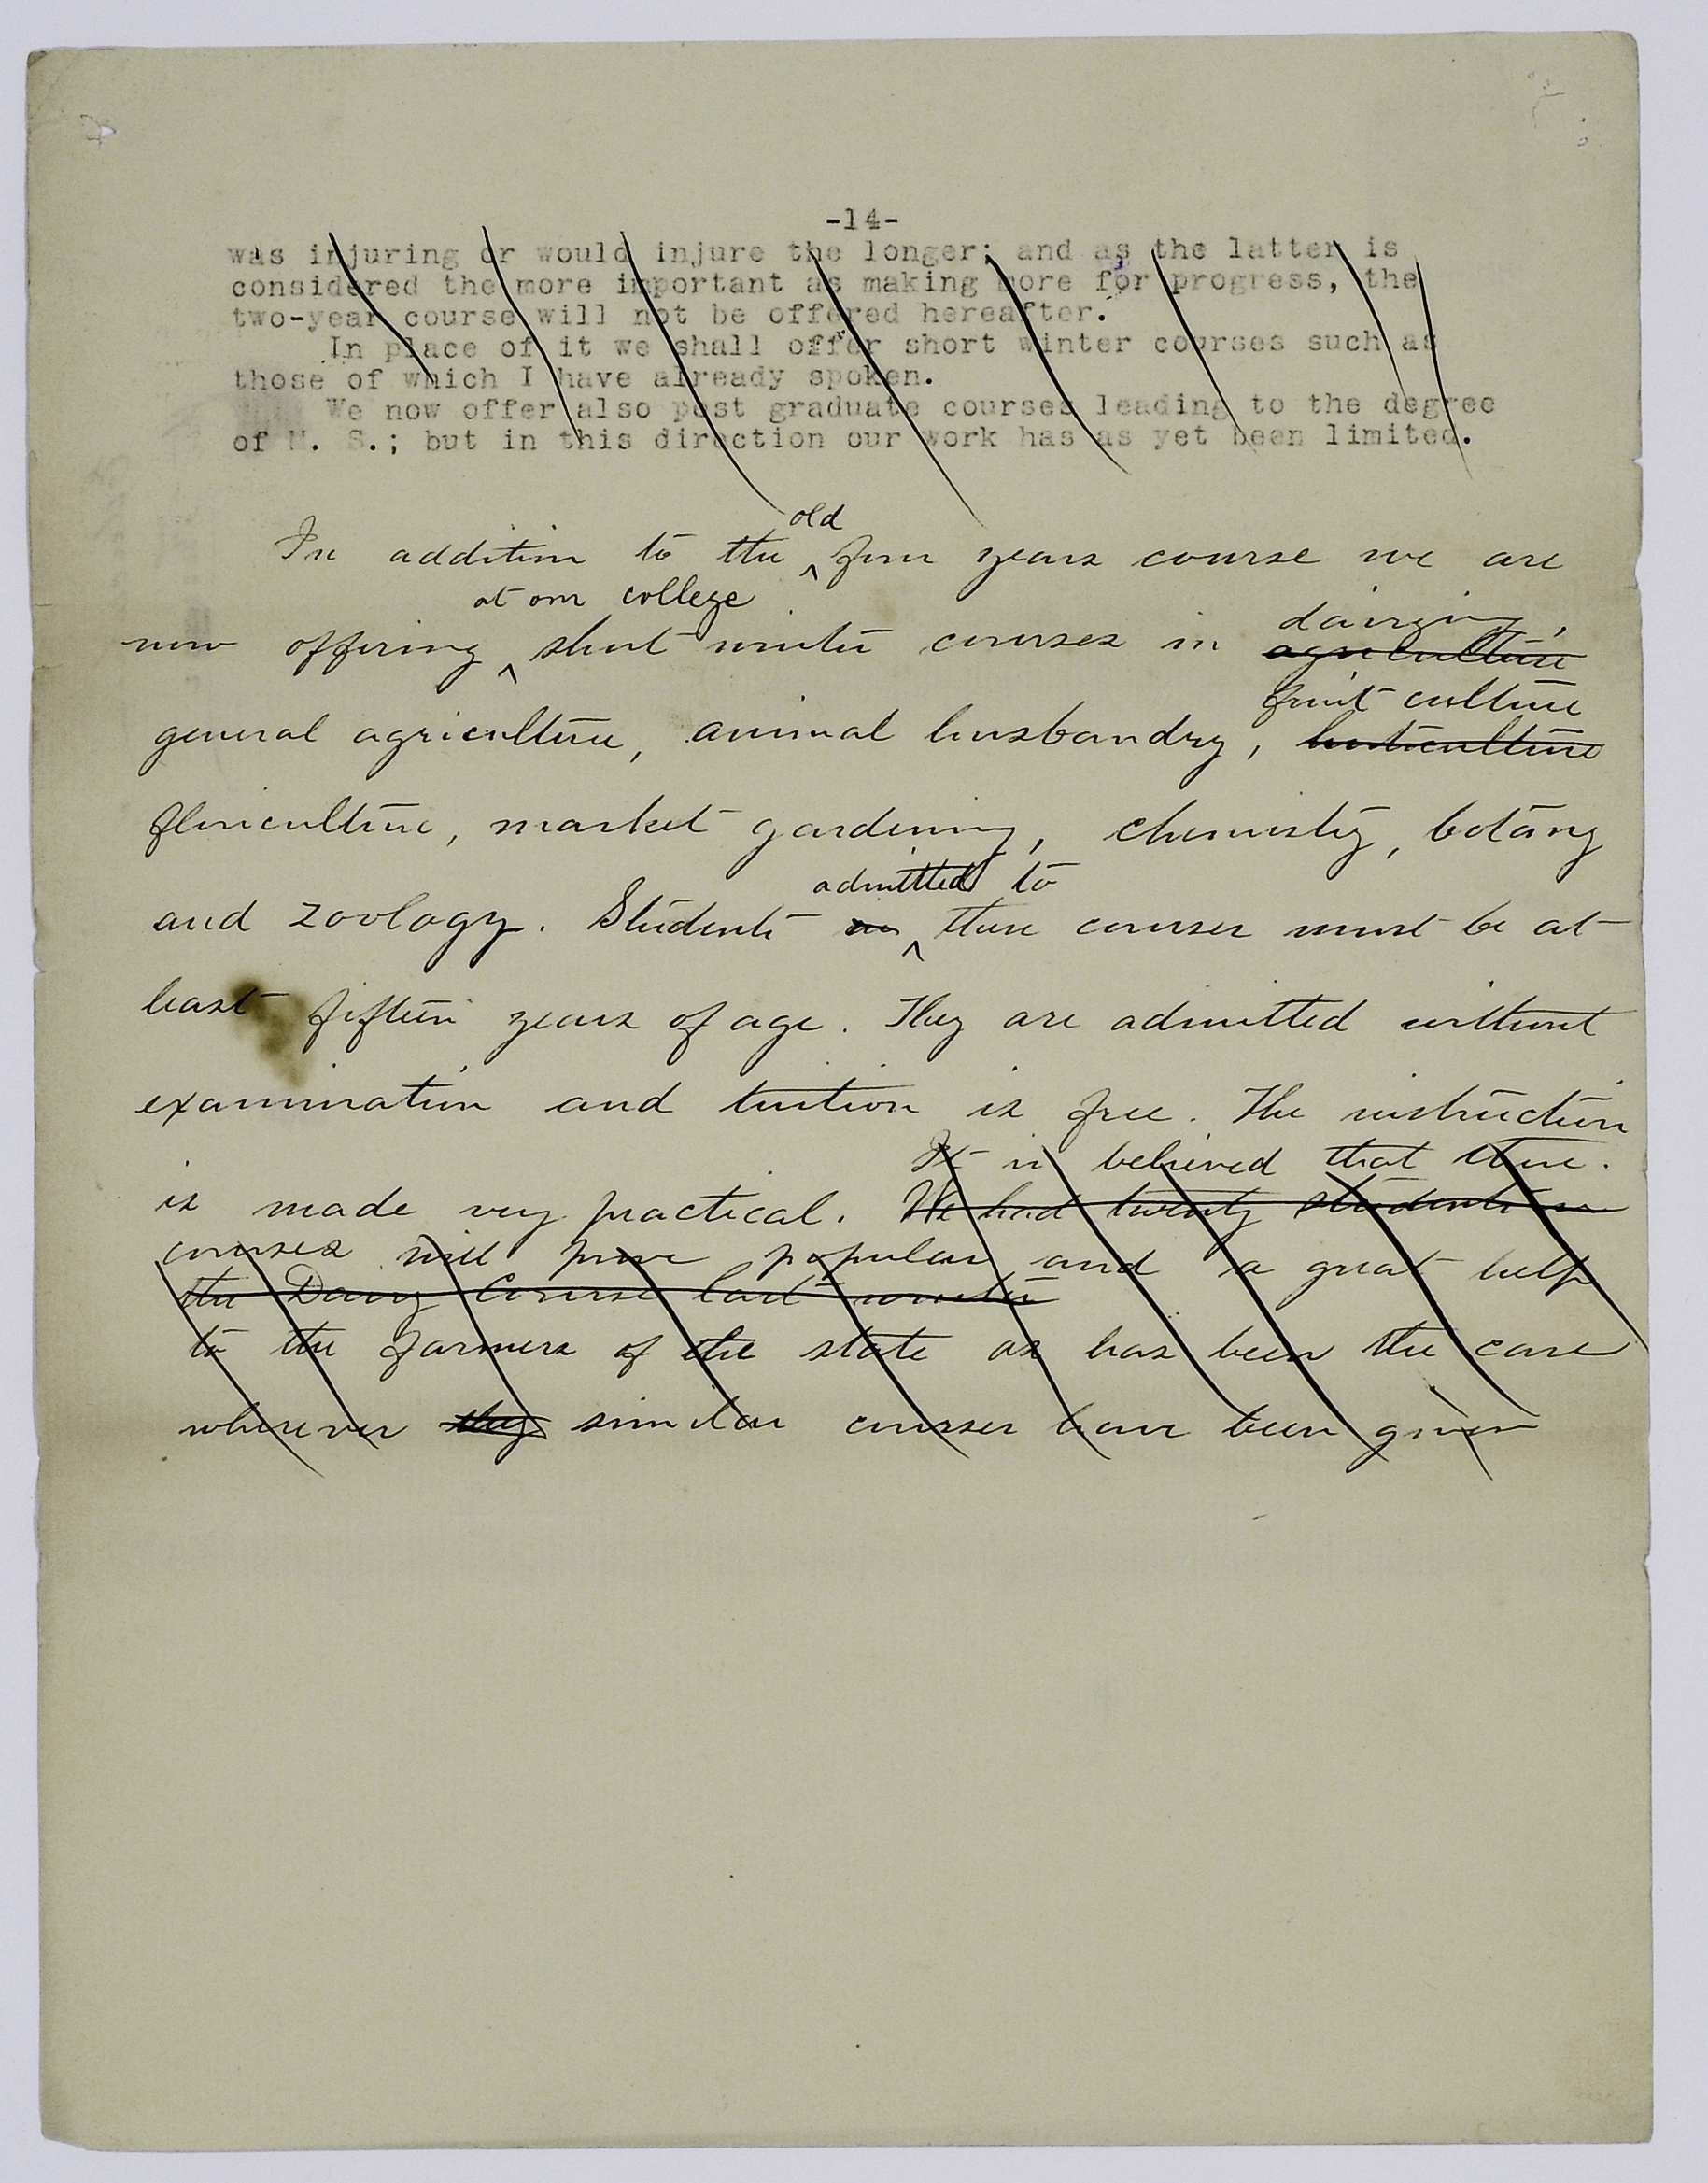 -14-
was injuring or would injure the longer; and as the latter is
considered the more important as making more for progress, the
two-year course will not be offered hereafter.
In place of it we shall offer short winter courses such as
those of which I have already spoken.
We now offer also post graduate courses leading to the degree
of M. S.; but in this direction our work has as yet been limited.
old
In addition to the ^ four years course we are
at our college
dairying,
now offering ^ short winter courses in agriculture
fruit culture
general agriculture, animal husbandry, horticulture
floriculture, market gardening, chemistry, botany
admitted to
and zoology. Students in ^ these courses must be at
least fifteen years of age. They are admitted without
examination and tuition is free. The instruction
It is believed that these
is made very practical. We had twenty students in
courses will prove popular and a great help
the Dairy Course last winter
to the farmers of the state as has been the case
wherever they similar courses have been given